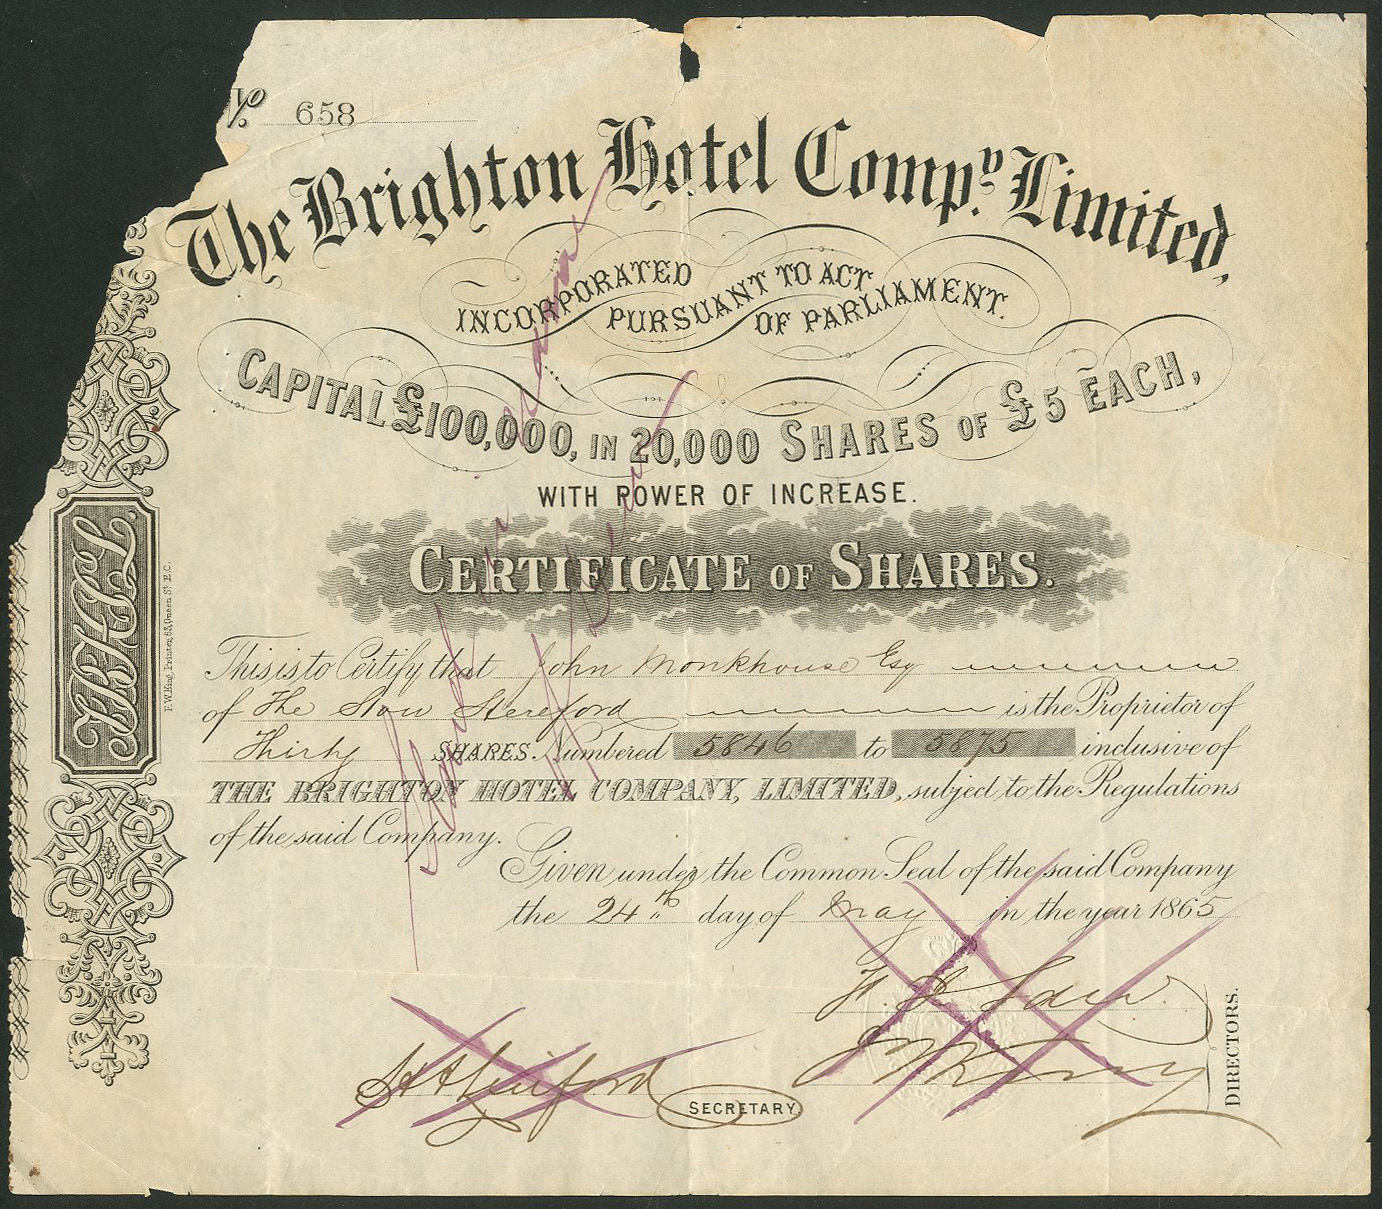 No. 658
The Brighton Hotel Compy. Limited,
INCORPORATED PURSUANT TO ACT OF PARLIAMENT.
CAPITAL £100,000, IN 20,000 SHARES OF £5 EACH,
WITH POWER OF INCREASE.
CERTIFICATE OF SHARES.
This is to Certify that John Monkhouse Esq
of The Stow Hereford is the Proprietor of
Thirty SHARES. Numbered 5846 to 5875 inclusive of
THE BRIGHTON HOTEL COMPANY, LIMITED, subject to the Regulations
of the said Company.
Given under the Common Seal of the said Company
the 24th day of May in the year 1865
DIRECTORS.
SECRETARY.
B.H.C.L.
F.W. King, Printer, 63, Queen St. E.C.